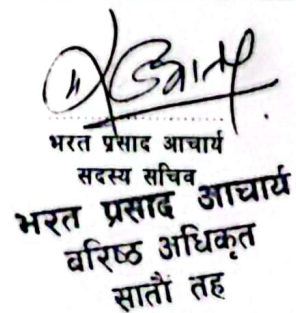 भरत प्रसाद आचार्य
सदस्य सचिव
भरत प्रसाद आचार्य
वरिष्ठ अधिकृत
सातौं तह